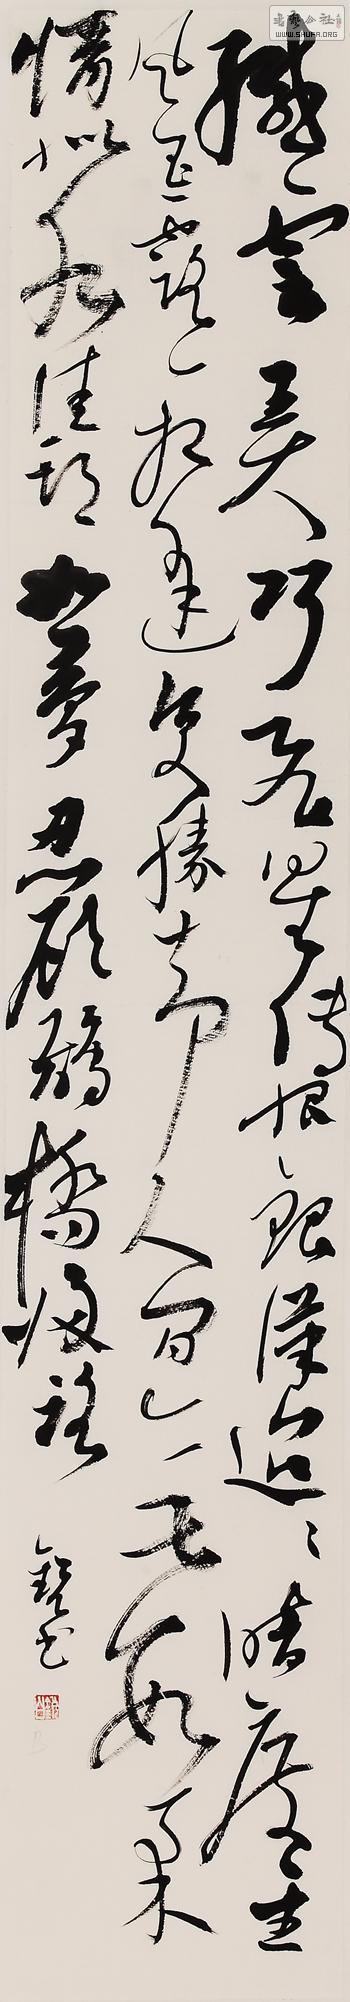 書法公社
WWW.SHUFA.ORG
纖雲弄巧飛星傳恨銀漢迢迢暗度金
風玉露一相逢便勝却人間無數柔
情似水佳期如夢忍顧鵲橋歸路
書